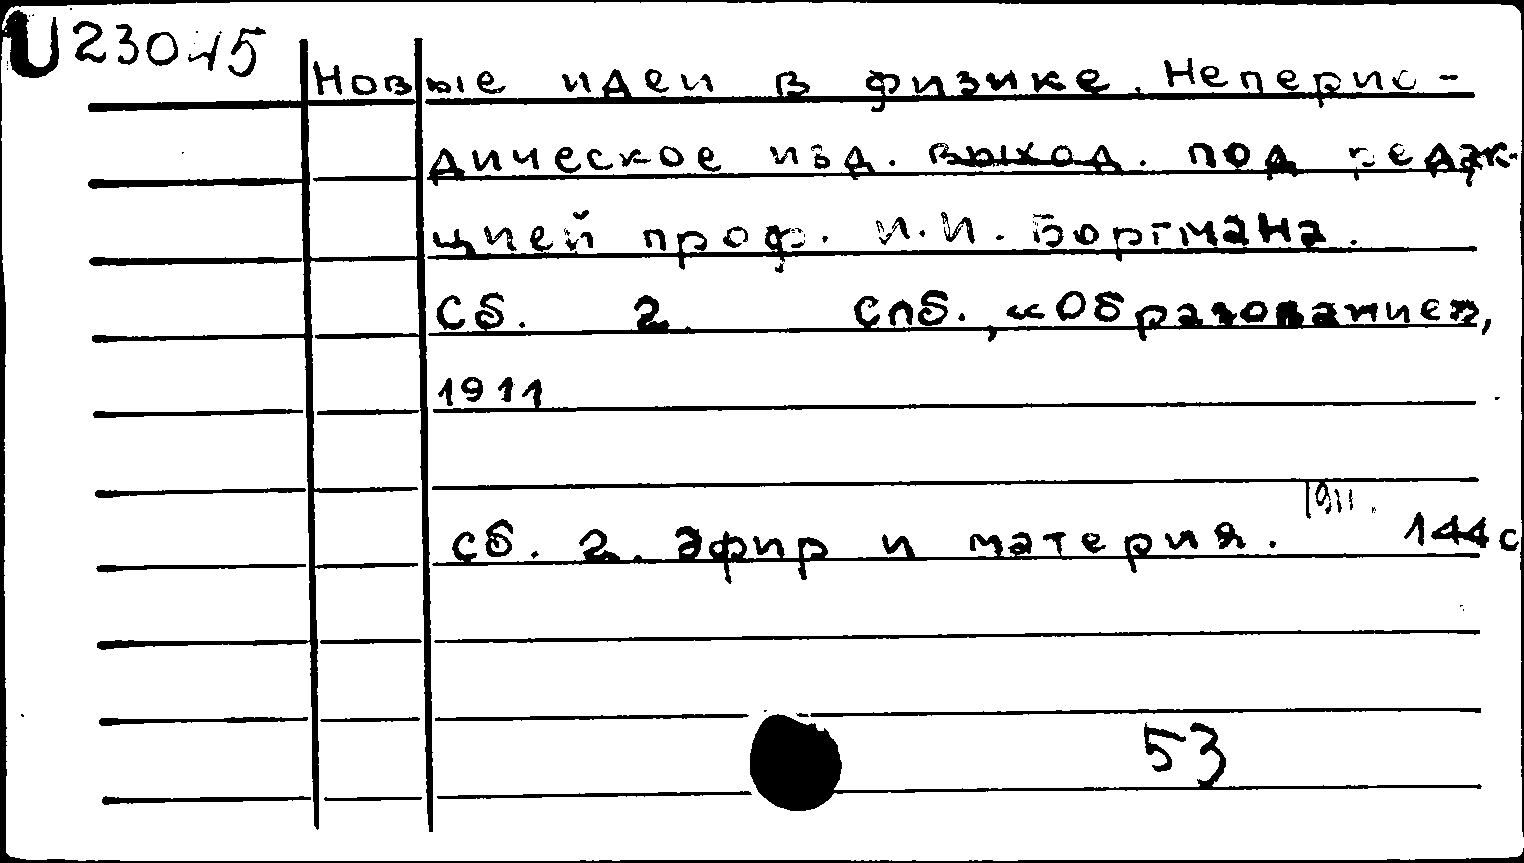 U23045
Новые идеи в физике. Неперио-
дическое изд. выход. под редак-
цией проф. И.И. Боргмана.
Сб. 2. Спб., «Образование»,
1911
1911.
Сб. 2. Эфир и материя. 144 с
53